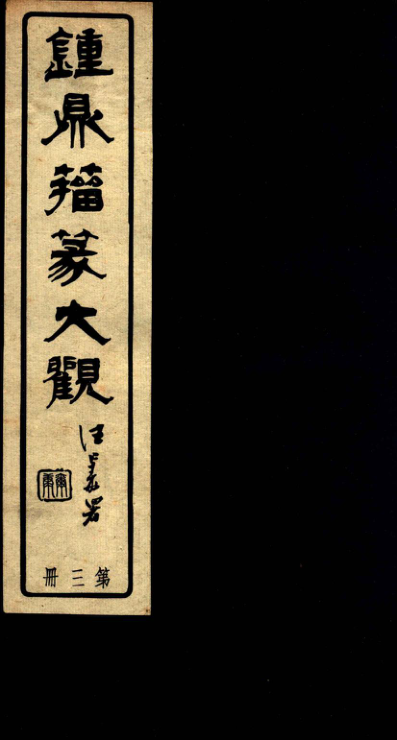 鍾鼎籀篆大觀
署
第三冊